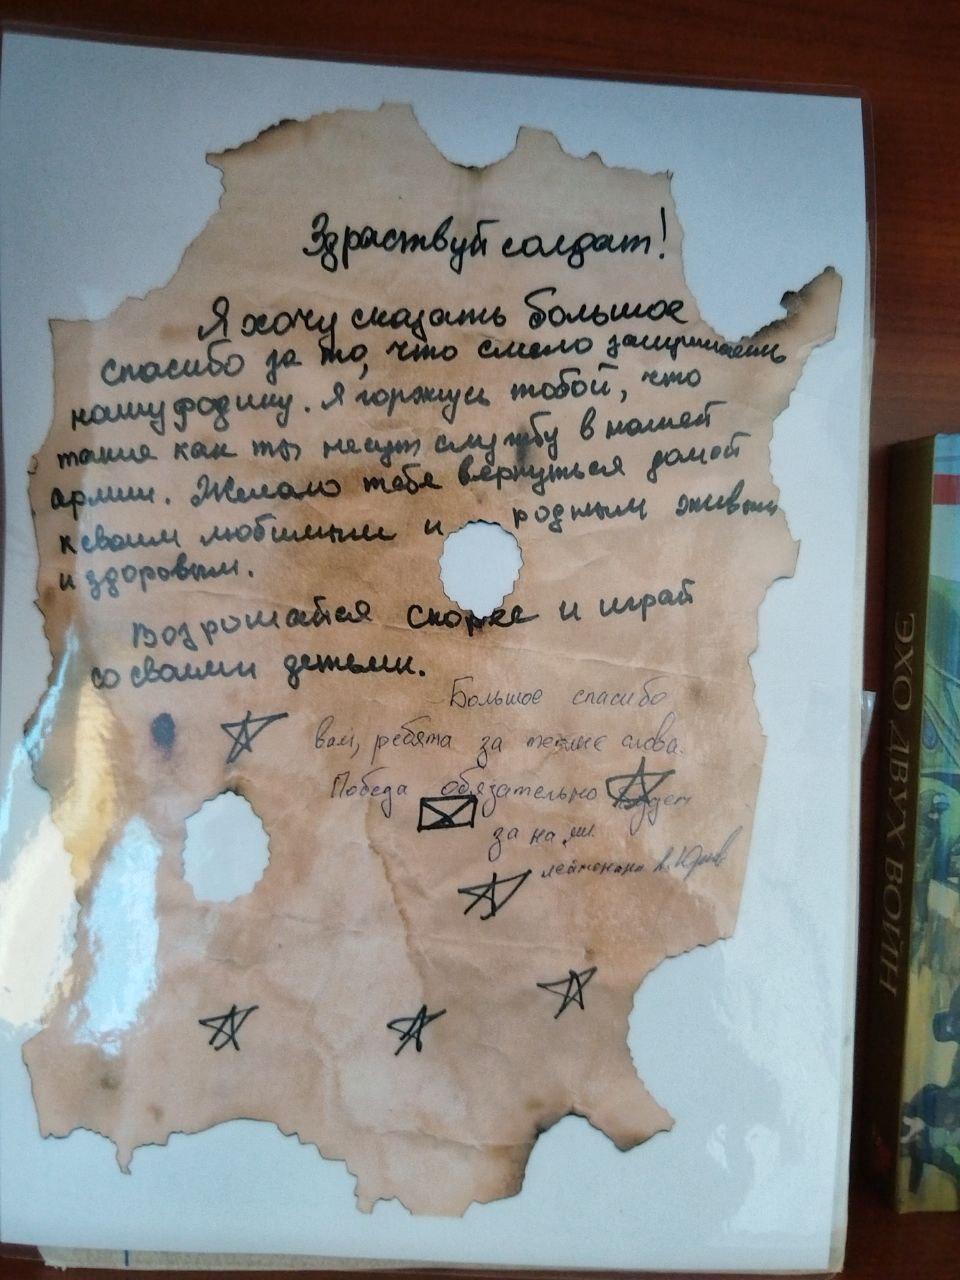 Здраствуй солдат!
Я хочу сказать большое
спасибо за то, что смело защищаешь
нашу родину. Я горжусь тобой, что
такие как ты несут службу в нашей
армии. Желаю тебе вернуться домой
к своим любимым и родным живым
и здоровым.
Возрошайся скорее и играй
со своими детьми.
Большое спасибо
вам, ребята за теплые слова.
Победа обязательно будет
за нами.
лейтенант
ЭХО ДВУХ ВОЙН